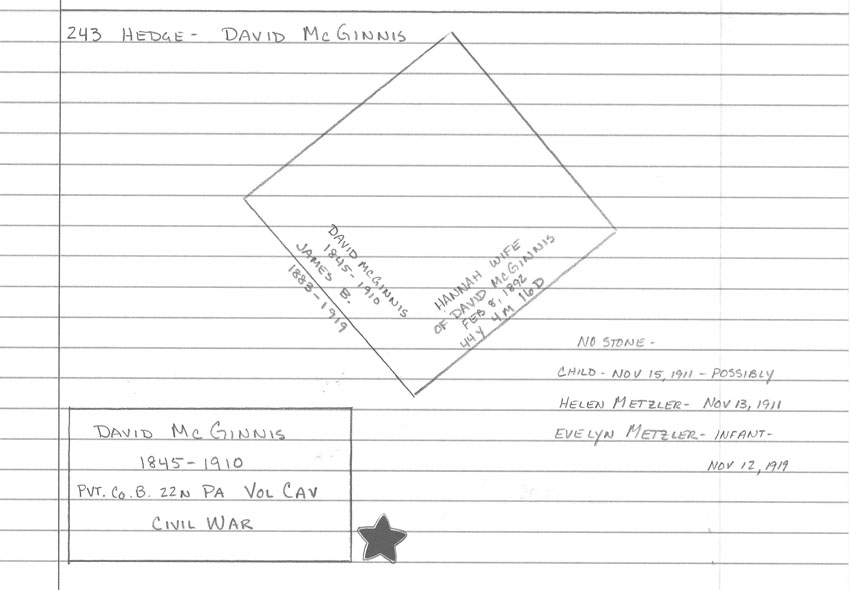 243 HEDGE - DAVID McGINNIS
DAVID McGINNIS
1845-1910
JAMES B.
1883-1919
HANNAH WIFE
OF DAVID McGINNIS
FEB 8, 1892
44Y 4M 16D
NO STONE -
CHILD - NOV 15, 1911 - POSSIBLY
HELEN METZLER - NOV 13, 1911
EVELYN METZLER - INFANT -
NOV 12, 1919
DAVID McGINNIS
1845-1910
PVT. Co. B. 22N PA VOL CAV
CIVIL WAR